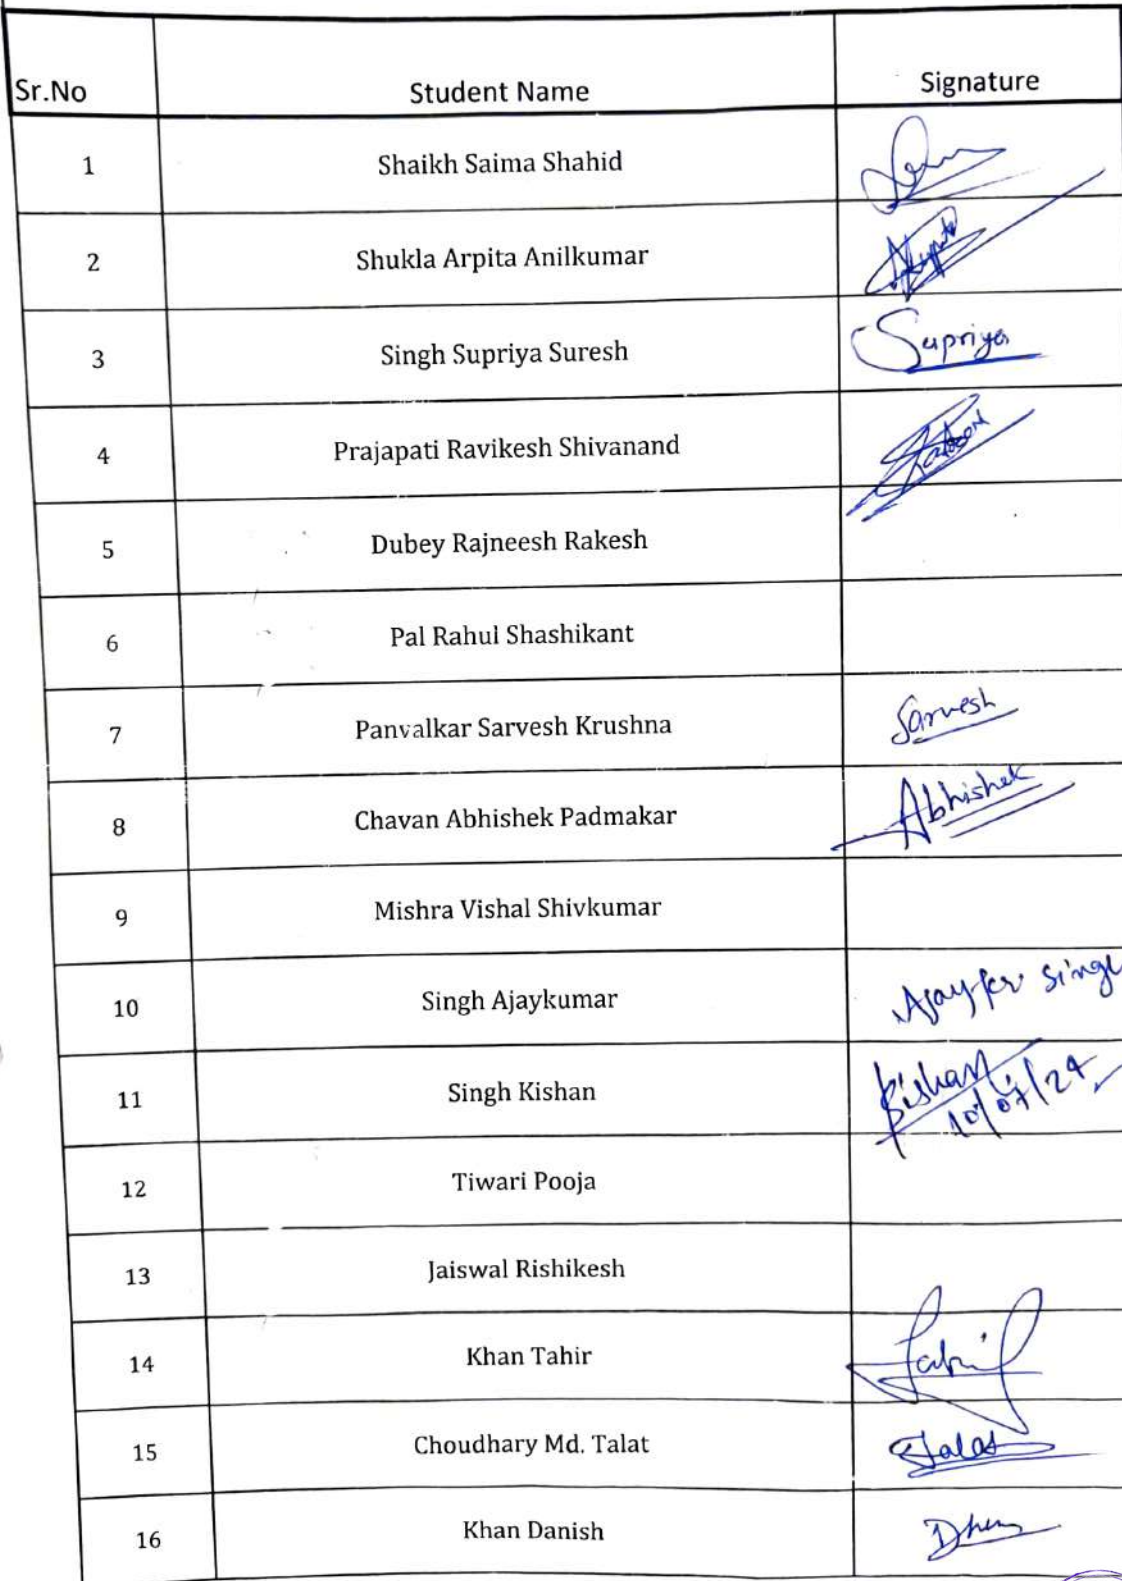 Sr.No Student Name Signature
1 Shaikh Saima Shahid
2 Shukla Arpita Anilkumar
3 Singh Supriya Suresh Supriya
4 Prajapati Ravikesh Shivanand
5 Dubey Rajneesh Rakesh
6 Pal Rahul Shashikant
7 Panvalkar Sarvesh Krushna Sarvesh
8 Chavan Abhishek Padmakar Abhishek
9 Mishra Vishal Shivkumar
10 Singh Ajaykumar
11 Singh Kishan Kishan
10/07/24
12 Tiwari Pooja
13 Jaiswal Rishikesh
14 Khan Tahir
15 Choudhary Md. Talat Talat
16 Khan Danish